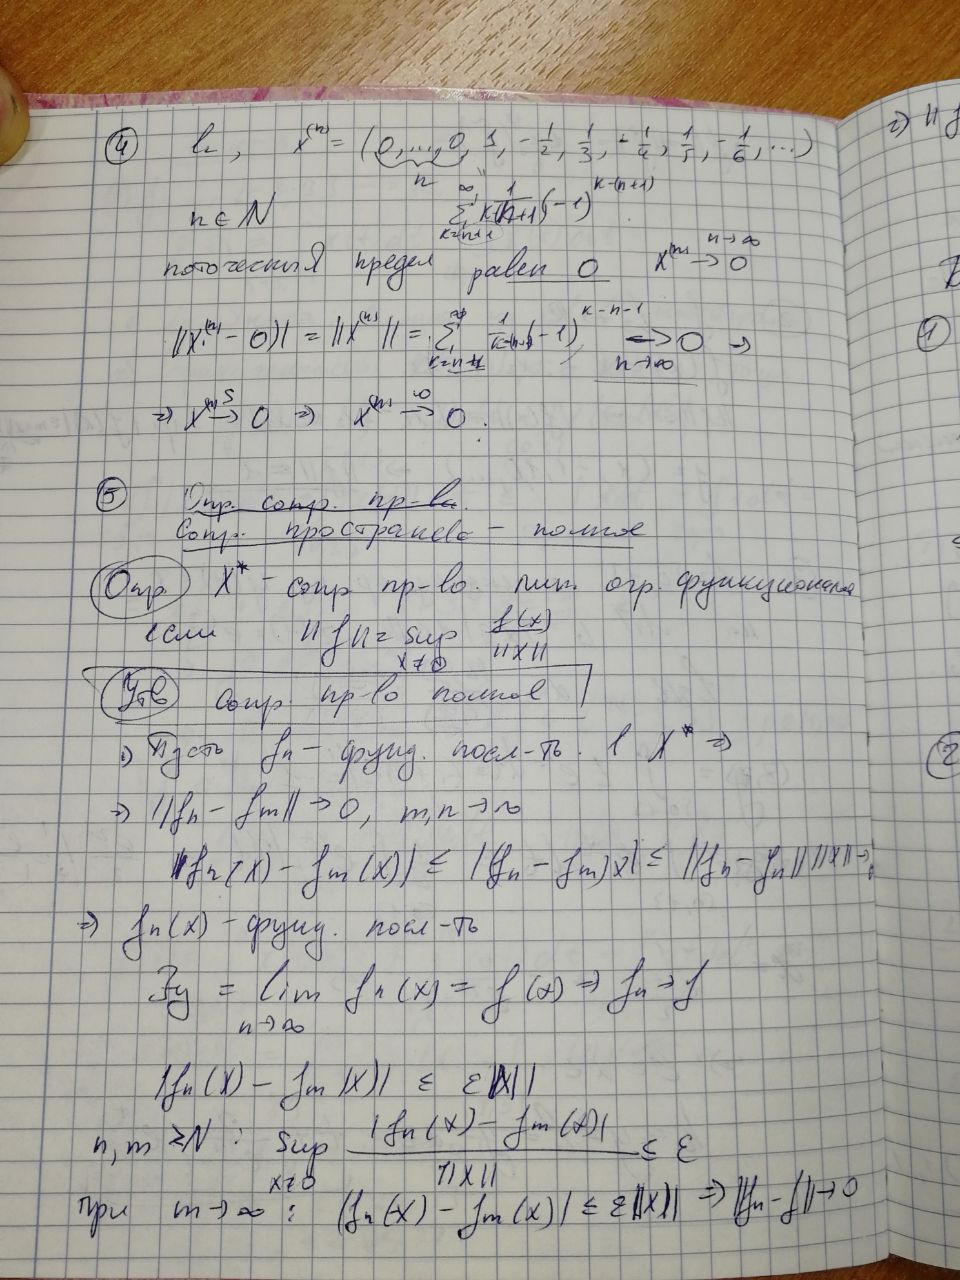 ④ l₂, x⁽ⁿ⁾ = (0,...,0, 1, -1/2, 1/3, -1/4, 1/5, -1/6, ...)
n
n ∈ N ∑ k=n+1 ∞ (-1)^{k-(n+1)}
поточечный предел равен 0 x⁽ⁿ⁾ → 0 n→∞
||x⁽ⁿ⁾ - 0|| = ||x⁽ⁿ⁾|| = ∑ (-1)^{k-n-1} → 0 n→∞ ⇒
⇒ x⁽ⁿ⁾ →ˢ 0 ⇒ x⁽ⁿ⁾ →^ω 0.
⑤ Опр. сопр. пр-ва.
Сопр. пространство - полное
Опр X* - сопр пр-во. лин. огр. функционала
если ||f|| = sup x≠0 f(x)/||x||
Утв сопр. пр-во полное
⇒) Пусть fn - фунд. посл-ть. в X* ⇒
⇒ ||fn - fm|| → 0, m,n → ∞
|fn(x) - fm(x)| ≤ |(fn - fm)x| ≤ ||fn - fn|| ||x|| →
⇒ fn(x) - фунд. посл-ть
∃y = lim n→∞ fn(x) = f(x) ⇒ fn → f
|fn(x) - fm(x)| ≤ ε||x||
n, m ≥ N : sup x≠0 |fn(x) - fm(x)| / ||x|| ≤ ε
при m → ∞ : |fn(x) - fm(x)| ≤ ε||x|| ⇒ ||fn - f|| → 0